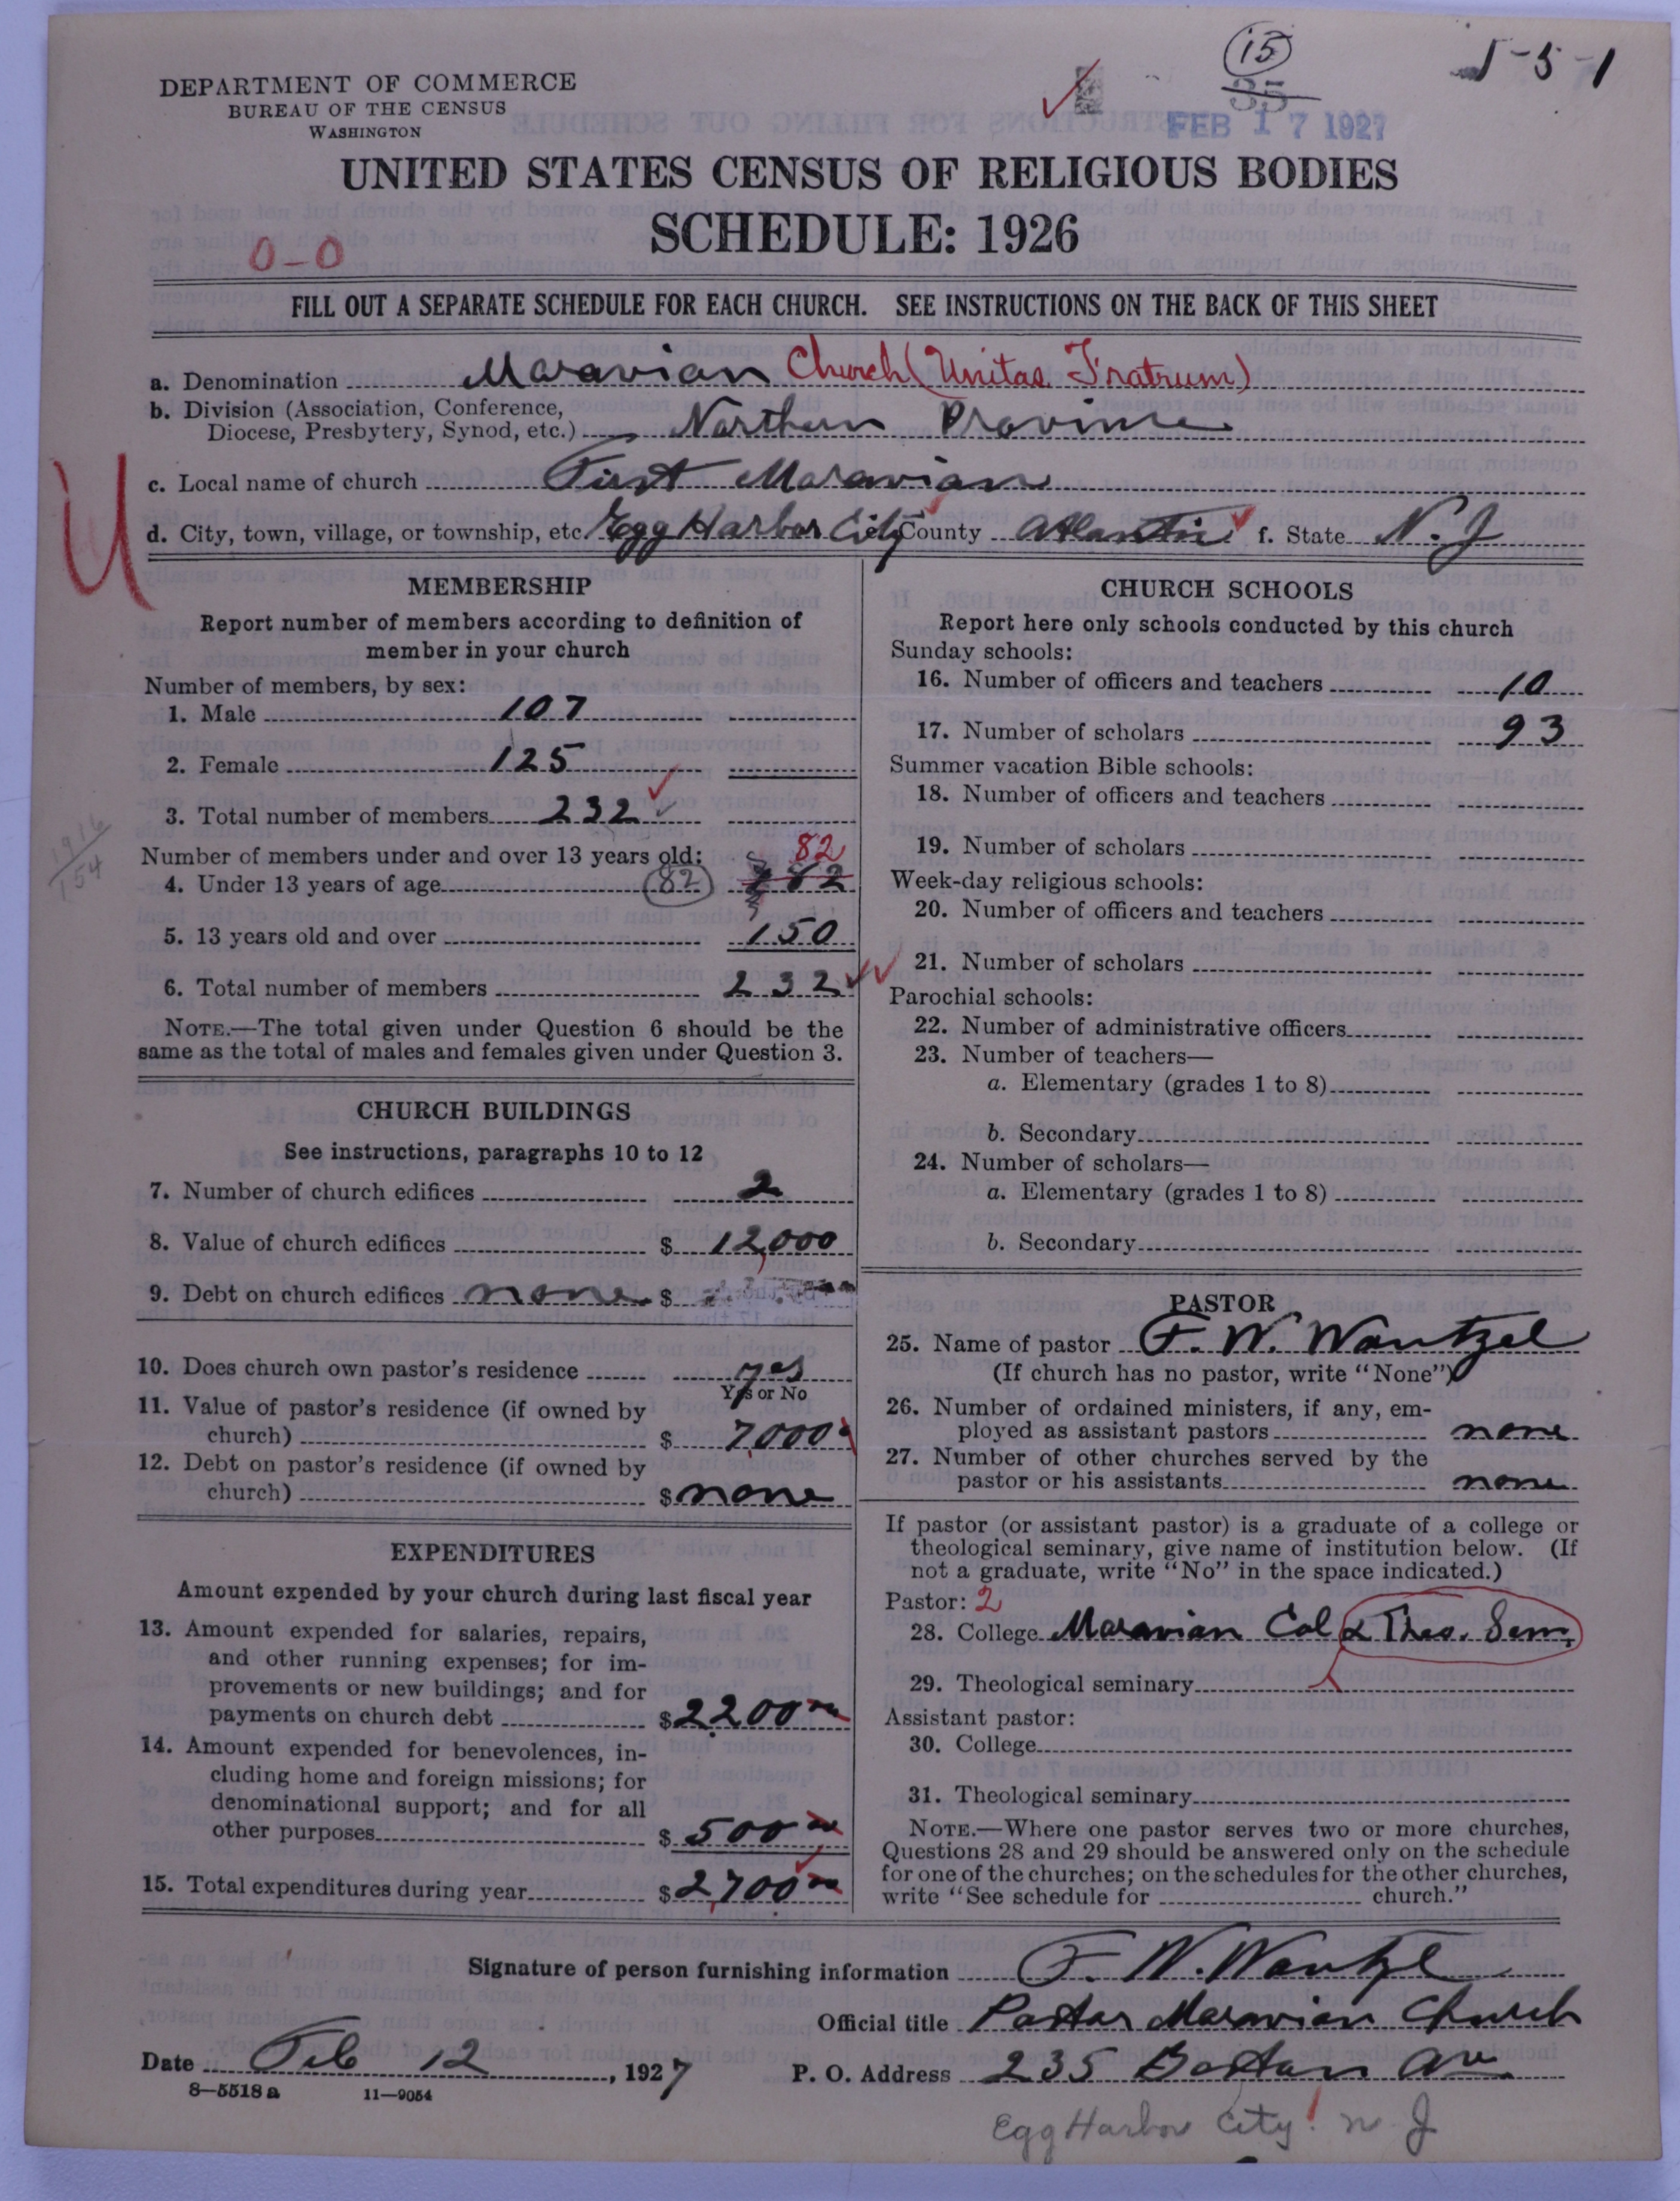 (15)
35
5-5-1
FEB 17 1927
DEPARTMENT OF COMMERCE
BUREAU OF THE CENSUS
WASHINGTON
UNITED STATES CENSUS OF RELIGIOUS BODIES
SCHEDULE: 1926
0-0
FILL OUT A SEPARATE SCHEDULE FOR EACH CHURCH. SEE INSTRUCTIONS ON THE BACK OF THIS SHEET
a. Denomination Moravian Church (Unitas Fratrum)
b. Division (Association, Conference,
Diocese, Presbytery, Synod, etc.) Northern Province
c. Local name of church First Moravian
d. City, town, village, or township, etc. Egg Harbor City e. County Atlantic f. State N. J
MEMBERSHIP
Report number of members according to definition of
member in your church
Number of members, by sex:
1. Male 107
2. Female 125
3. Total number of members 232
1916
154
Number of members under and over 13 years old:
82
4. Under 13 years of age (82) 82
5. 13 years old and over 150
6. Total number of members 232
NOTE.—The total given under Question 6 should be the
same as the total of males and females given under Question 3.
CHURCH BUILDINGS
See instructions, paragraphs 10 to 12
7. Number of church edifices 2
8. Value of church edifices $ 12,000
9. Debt on church edifices none $
10. Does church own pastor's residence yes
Yes or No
11. Value of pastor's residence (if owned by
church) $ 7,000
12. Debt on pastor's residence (if owned by
church) $ none
EXPENDITURES
Amount expended by your church during last fiscal year
13. Amount expended for salaries, repairs,
and other running expenses; for im-
provements or new buildings; and for
payments on church debt $ 2200
14. Amount expended for benevolences, in-
cluding home and foreign missions; for
denominational support; and for all
other purposes $ 500
15. Total expenditures during year $ 2,700
CHURCH SCHOOLS
Report here only schools conducted by this church
Sunday schools:
16. Number of officers and teachers 10
17. Number of scholars 93
Summer vacation Bible schools:
18. Number of officers and teachers
19. Number of scholars
Week-day religious schools:
20. Number of officers and teachers
21. Number of scholars
Parochial schools:
22. Number of administrative officers
23. Number of teachers—
a. Elementary (grades 1 to 8)
b. Secondary
24. Number of scholars—
a. Elementary (grades 1 to 8)
b. Secondary
PASTOR
25. Name of pastor F. W. Wantzel
(If church has no pastor, write "None")
26. Number of ordained ministers, if any, em-
ployed as assistant pastors none
27. Number of other churches served by the
pastor or his assistants none
If pastor (or assistant pastor) is a graduate of a college or
theological seminary, give name of institution below. (If
not a graduate, write "No" in the space indicated.)
Pastor: 2
28. College Moravian Col & Theo. Sem.
29. Theological seminary
Assistant pastor:
30. College
31. Theological seminary
NOTE.—Where one pastor serves two or more churches,
Questions 28 and 29 should be answered only on the schedule
for one of the churches; on the schedules for the other churches,
write "See schedule for church."
Signature of person furnishing information F. W. Wantzel
Official title Pastor Moravian Church
Date Feb 12, 1927 P. O. Address 235 Boston Ave
8-5518 a 11-9054
Egg Harbor City N. J